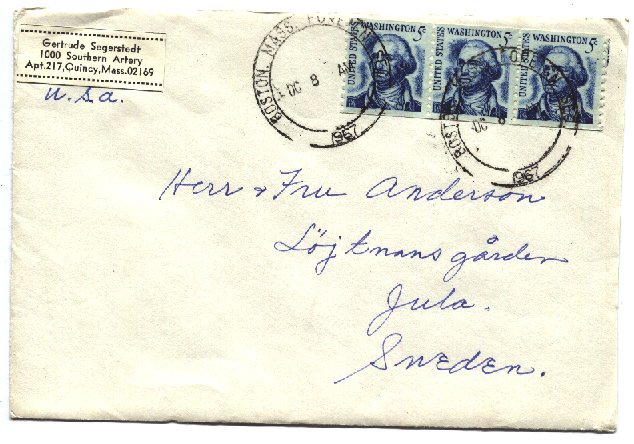 Gertrude Segerstedt
1000 Southern Artery
Apt.217,Quincy,Mass.02169
U.S.A.
BOSTON, MASS. FOREIGN
OC 8 AM
1967
UNITED STATES WASHINGTON 5c
UNITED STATES WASHINGTON 5c
UNITED STATES WASHINGTON 5c
BOSTON FOREIGN
OC 8
1967
Herr & Fru Anderson
Löjtnansgården
Jula.
Sweden.